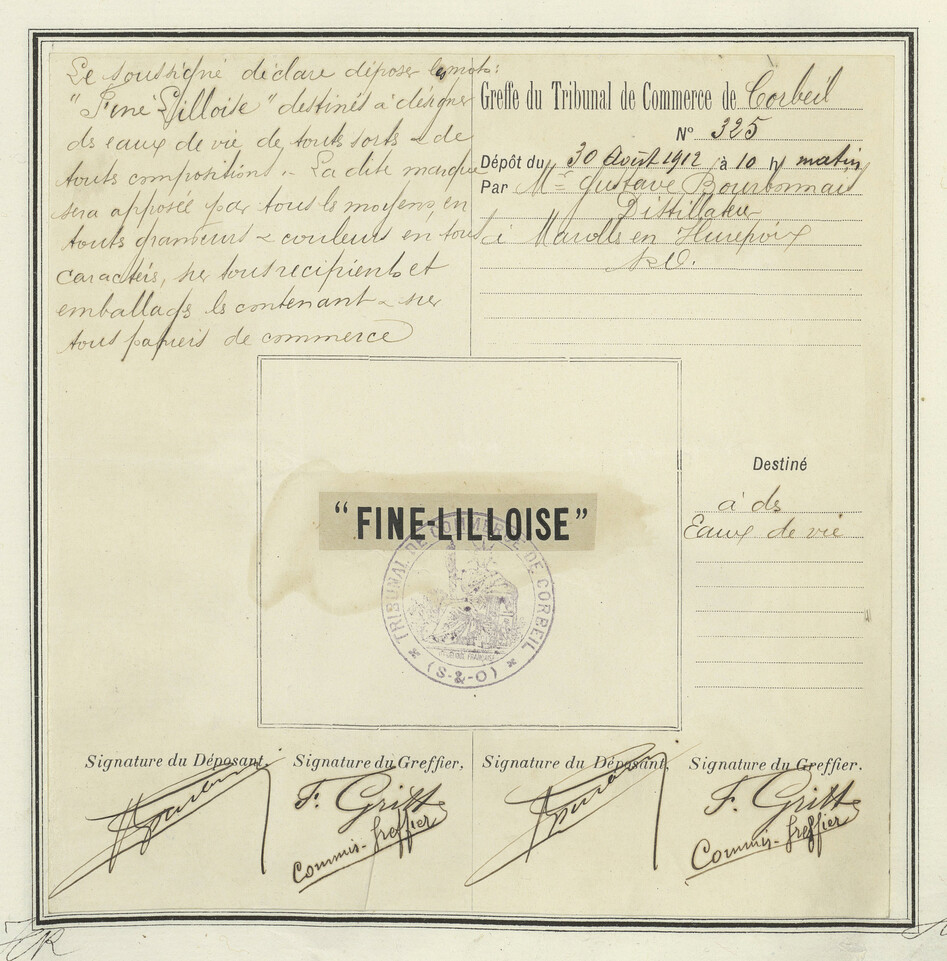 Le soussigné déclare déposer les mots :
"Fine-Lilloise" destinés à désigner
ds eaux de vie de touts sorts & de
touts compositions. La dite marque
sera apposée par tous ls moyens, en
touts grandeurs & couleurs en tous
caractèrs, sur tous recipients et
emballags ls contenant & sur
tous papiers de commerce
Greffe du Tribunal de Commerce de Corbeil
N° 325
Dépôt du 30 Août 1912 à 10 h matin
Par Mr Gustave Bourbonnais
Distillateur
à Marolls en Hurepoix
S&O.
"FINE-LILLOISE"
TRIBUNAL DE COMMERCE DE CORBEIL
(S-&-O)
Destiné
à ds
Eaux de vie
Signature du Déposant, Signature du Greffier, Signature du Déposant, Signature du Greffier.
F. Gritt F. Gritt
Commis-greffier Commis-greffier